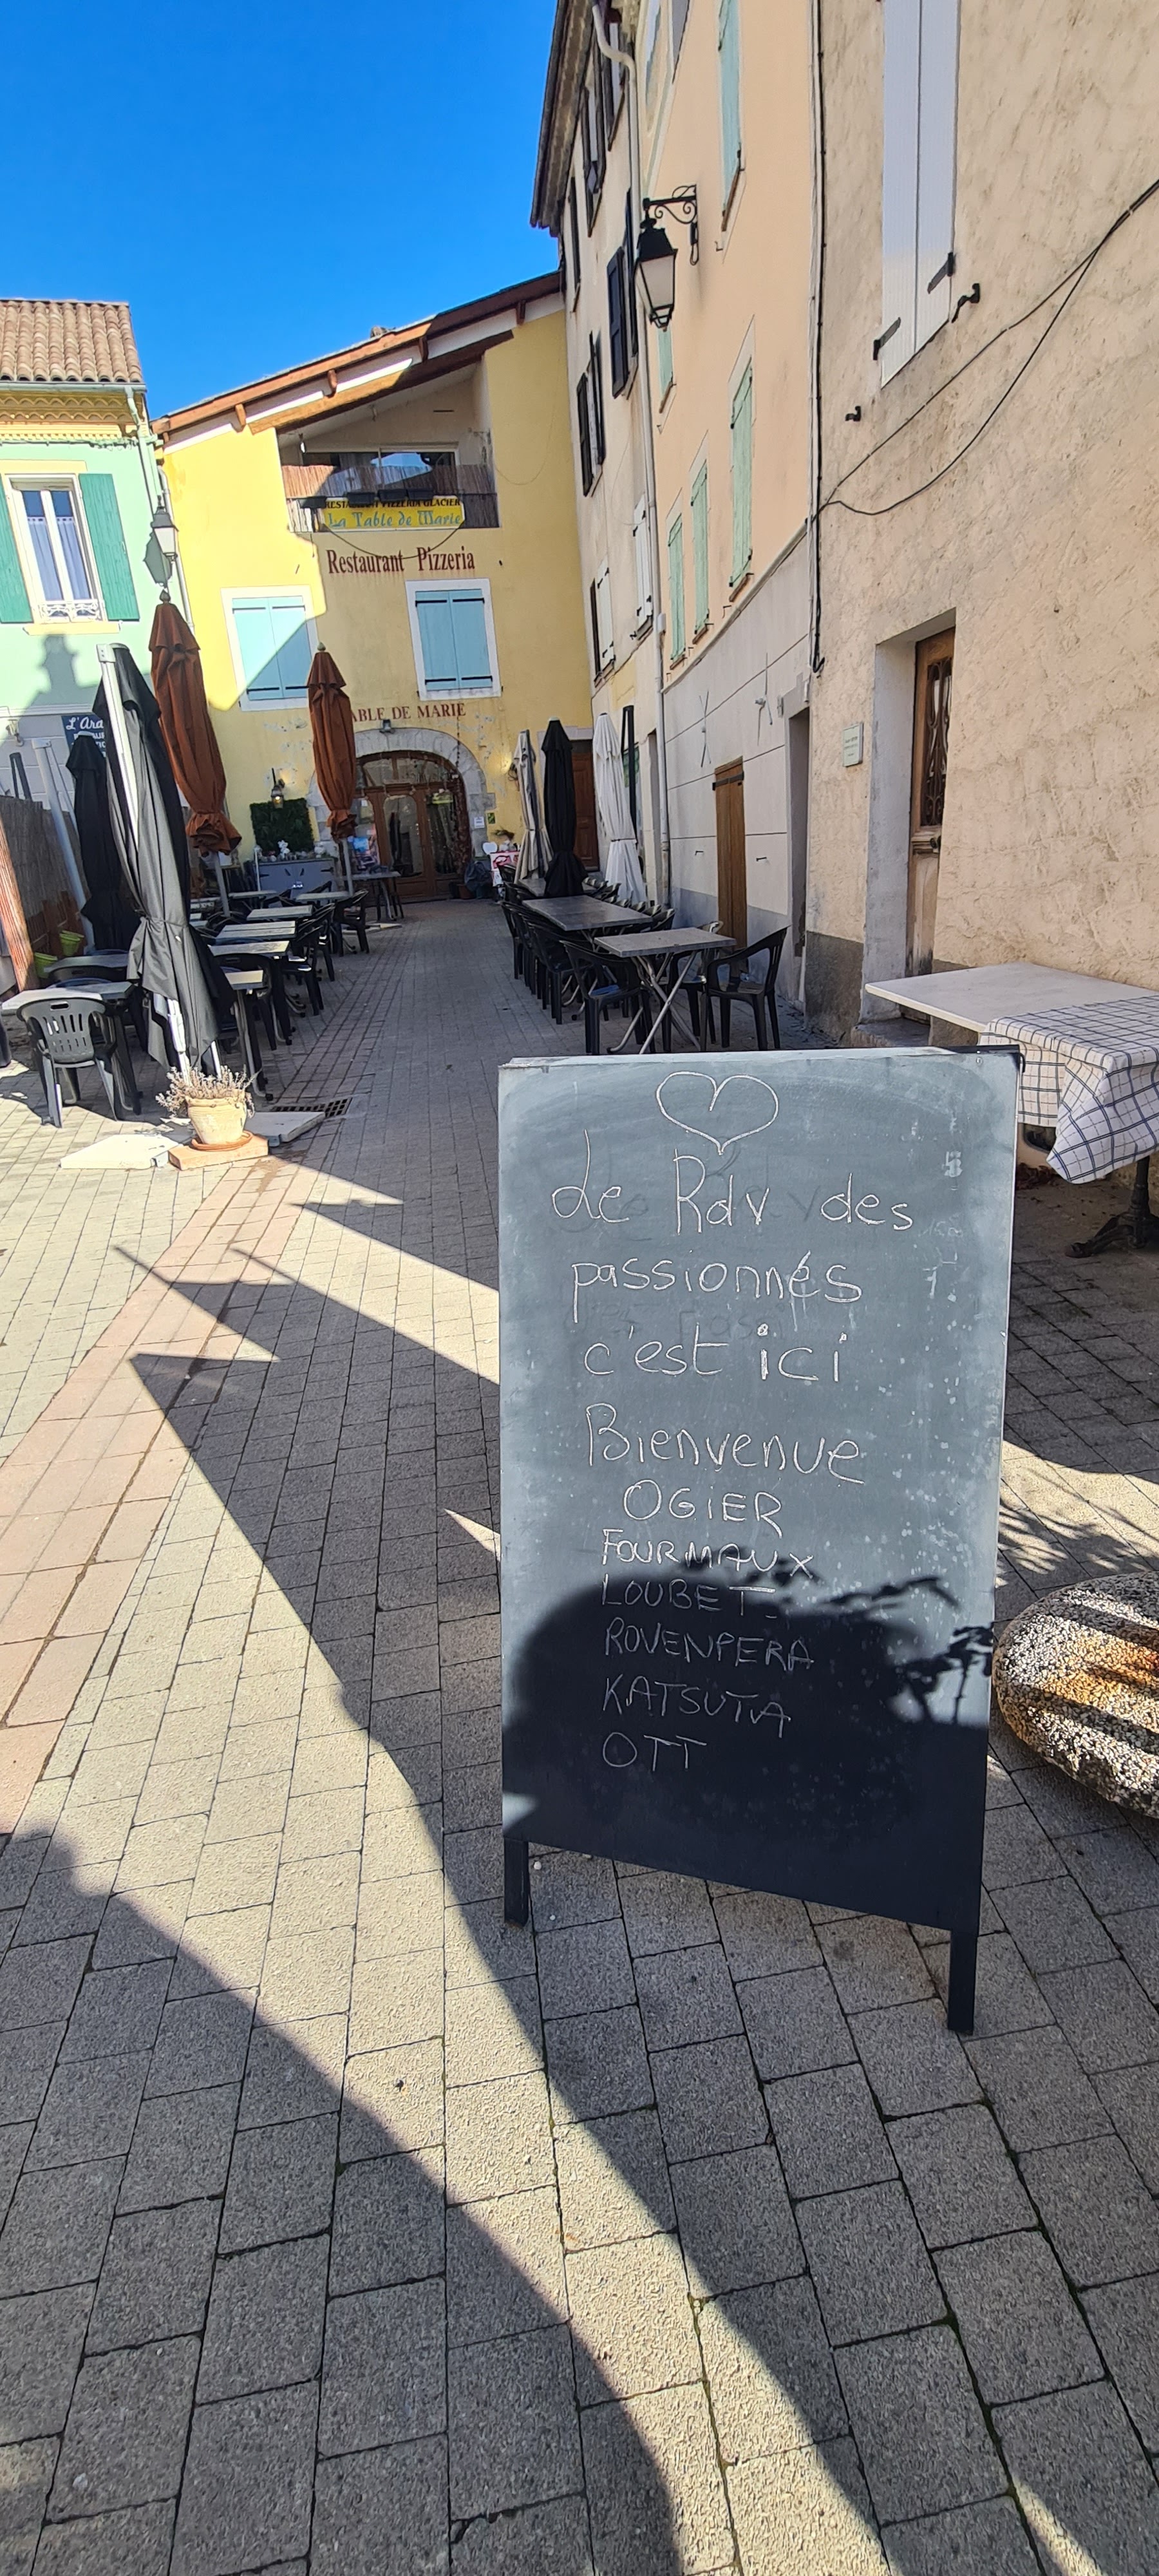 RESTAURANT PIZZERIA GLACIER
La Table de Marie
Restaurant Pizzeria
TABLE DE MARIE
L'Ara
Le Rdv des
passionnés
c'est ici
Bienvenue
OGIER
FOURMAUX
LOUBET
ROVENPERA
KATSUTA
OTT